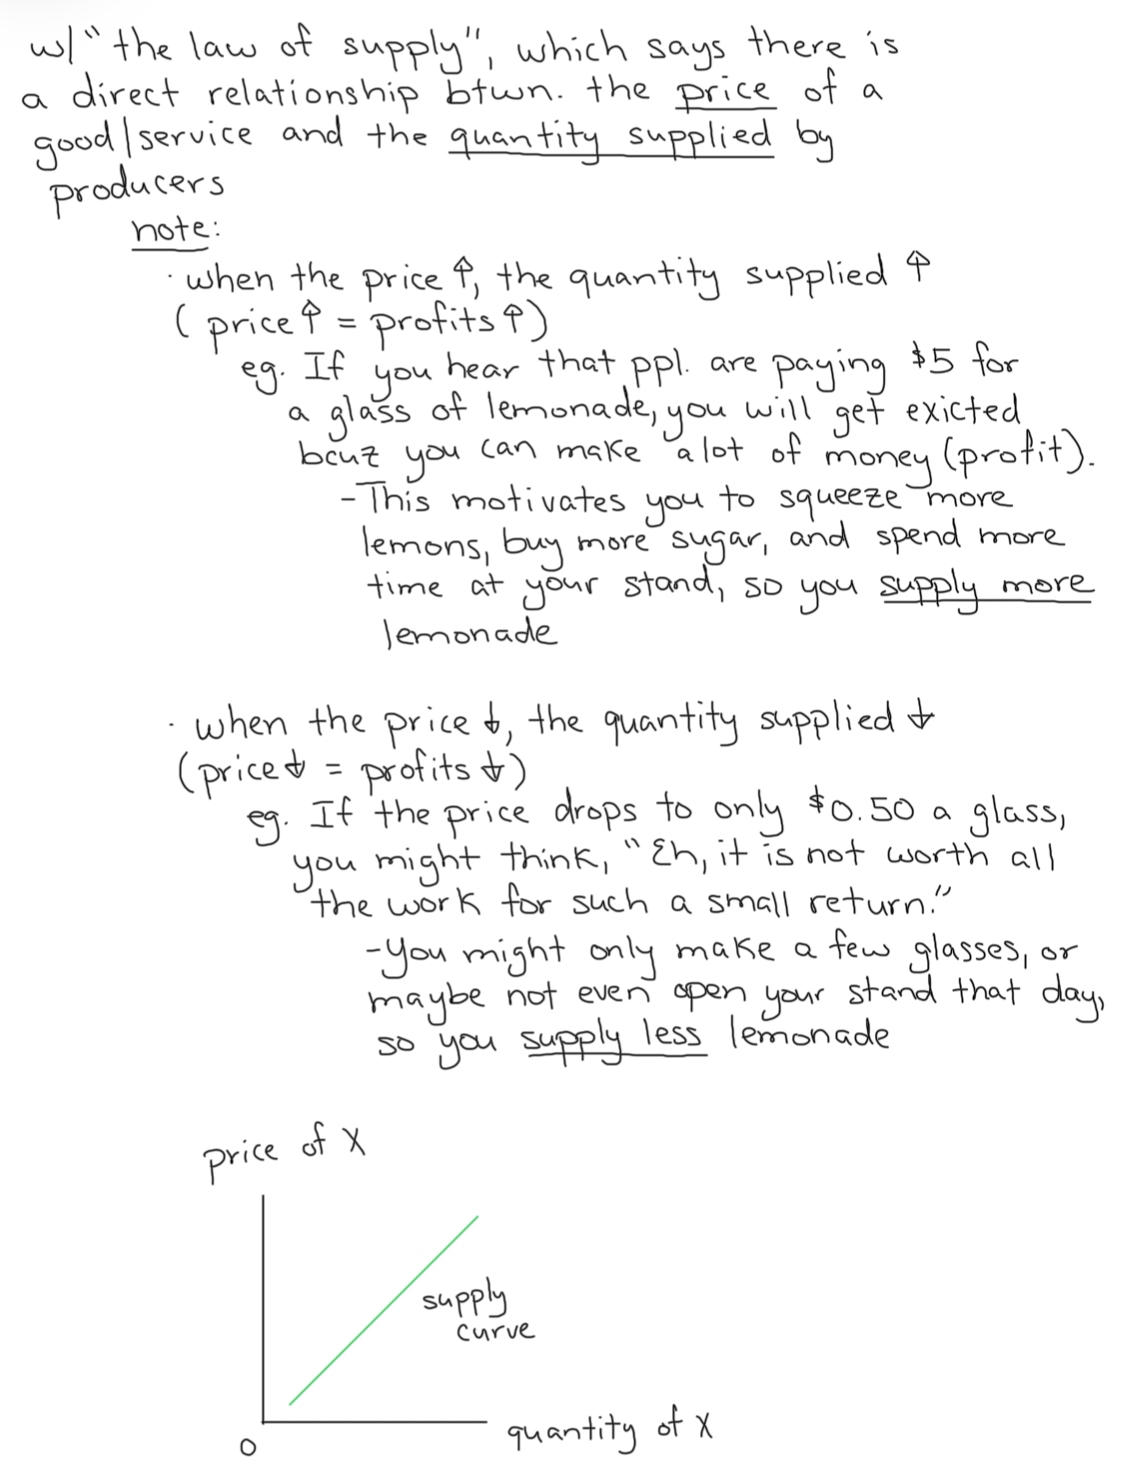 w/ "the law of supply", which says there is
a direct relationship btwn. the price of a
good/service and the quantity supplied by
producers
note:
· when the price ↑, the quantity supplied ↑
(price ↑ = profits ↑)
eg. If you hear that ppl. are paying $5 for
a glass of lemonade, you will get exicted
bcuz you can make a lot of money (profit).
- This motivates you to squeeze more
lemons, buy more sugar, and spend more
time at your stand, so you supply more
lemonade
· when the price ↓, the quantity supplied ↓
(price ↓ = profits ↓)
eg. If the price drops to only $0.50 a glass,
you might think, "Eh, it is not worth all
the work for such a small return."
- You might only make a few glasses, or
maybe not even open your stand that day,
so you supply less lemonade
price of X
supply
curve
0
quantity of X